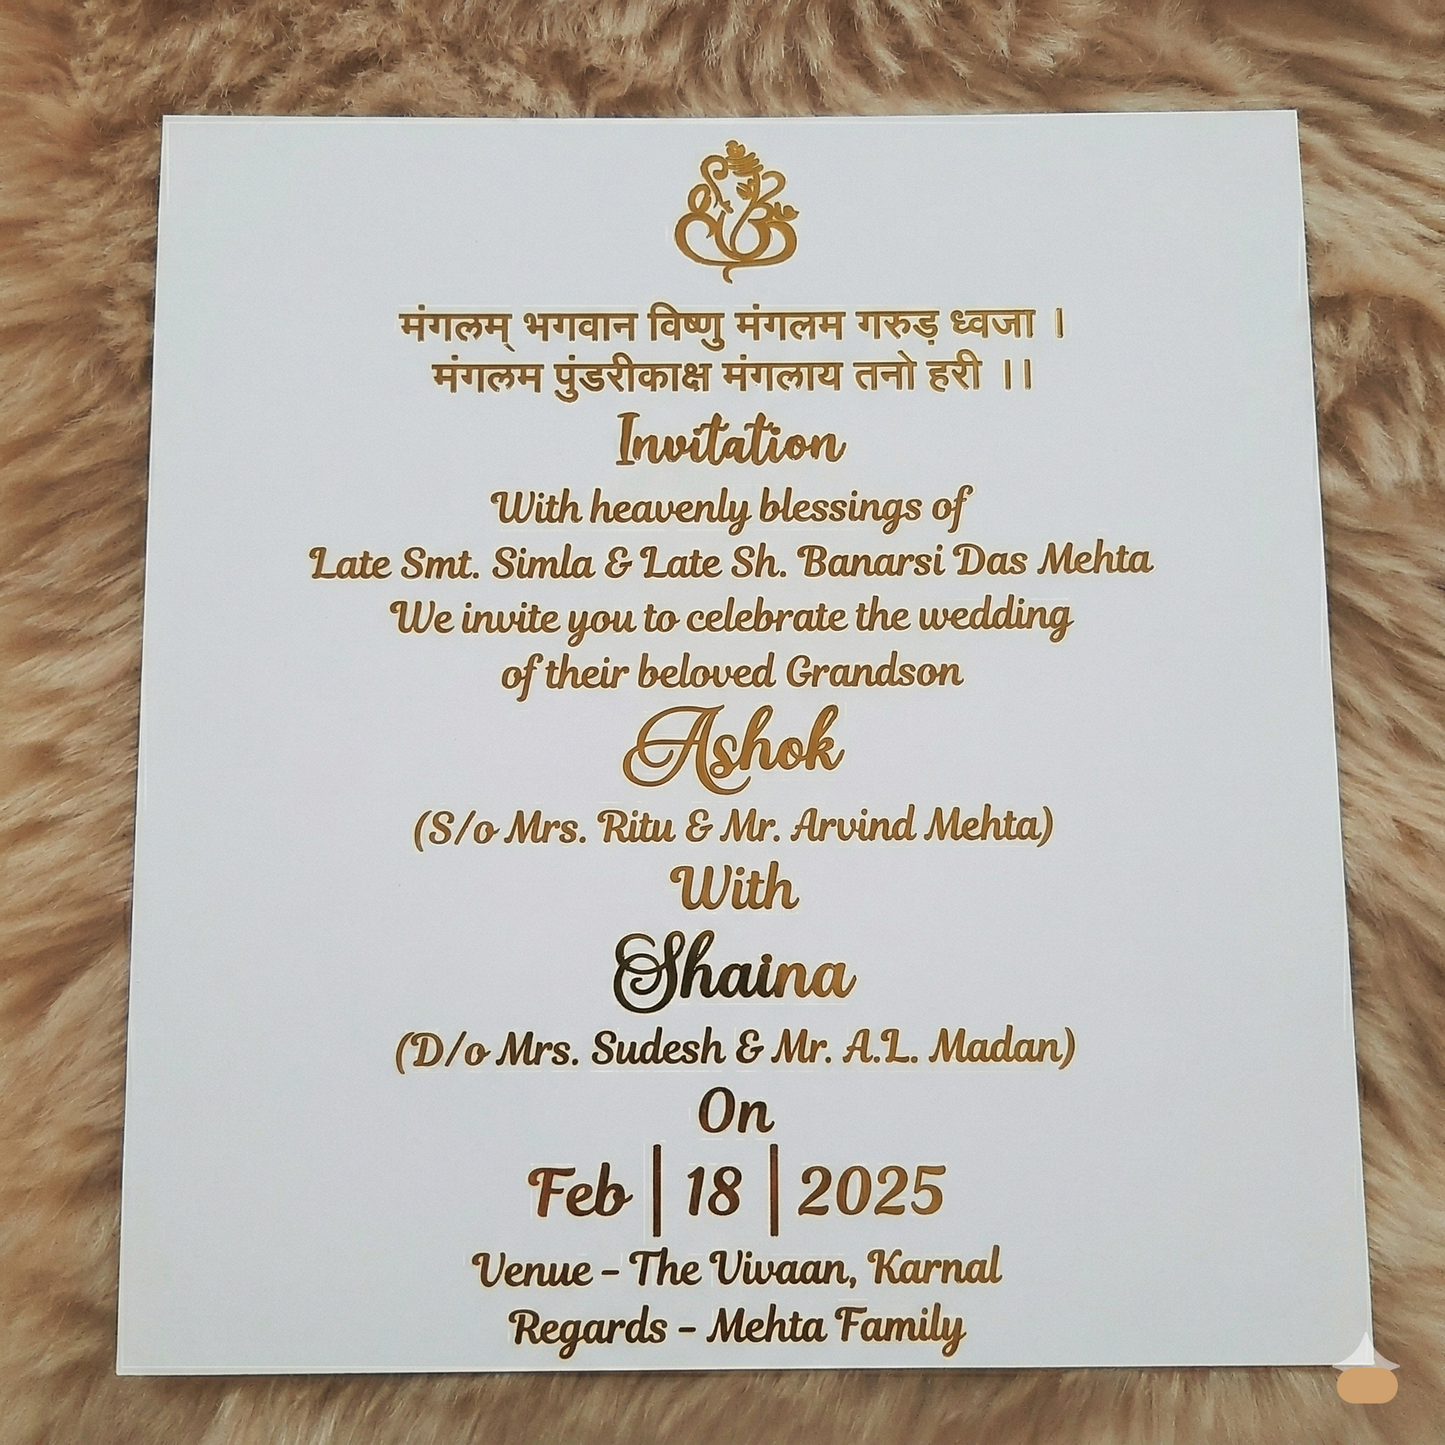 मंगलम् भगवान विष्णु मंगलम गरुड़ ध्वजा ।
मंगलम पुंडरीकाक्ष मंगलाय तनो हरी ।।
Invitation
With heavenly blessings of
Late Smt. Simla & Late Sh. Banarsi Das Mehta
We invite you to celebrate the wedding
of their beloved Grandson
Ashok
(S/o Mrs. Ritu & Mr. Arvind Mehta)
With
Shaina
(D/o Mrs. Sudesh & Mr. A.L. Madan)
On
Feb | 18 | 2025
Venue - The Vivaan, Karnal
Regards - Mehta Family